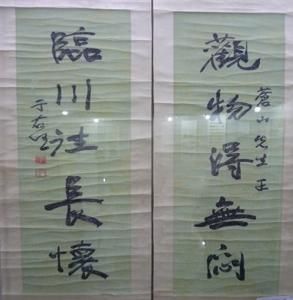 觀物得無悶
蒼山先生正
臨川 長懷
于右任